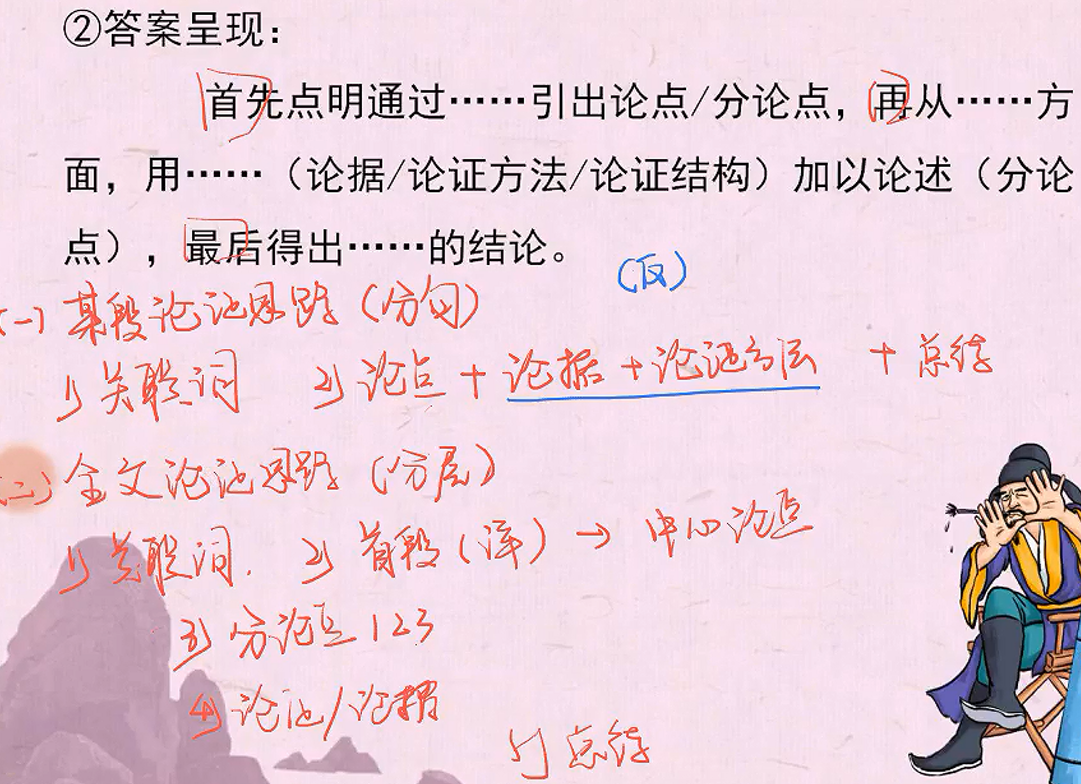 ②答案呈现：
首先点明通过……引出论点/分论点，再从……方
面，用……（论据/论证方法/论证结构）加以论述（分论
点），最后得出……的结论。
(反)
(一) 某段论证思路（分句）
1) 关联词 2) 论点 + 论据 + 论证方法 + 总结
(二) 全文论证思路（分层）
1) 关联词. 2) 首段（详）→ 中心论点
3) 分论点 123
4) 论证/论据
5) 总结